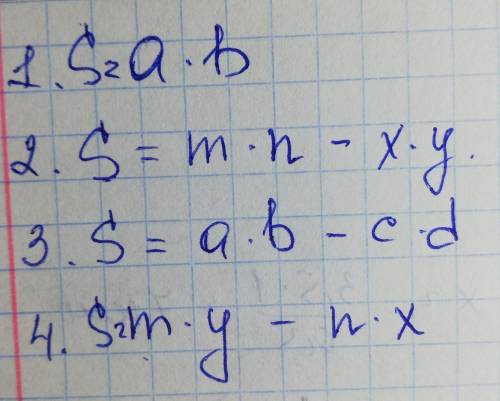 1. S = a · b
2. S = m · n - x · y.
3. S = a · b - c · d
4. S = m · y - n · x